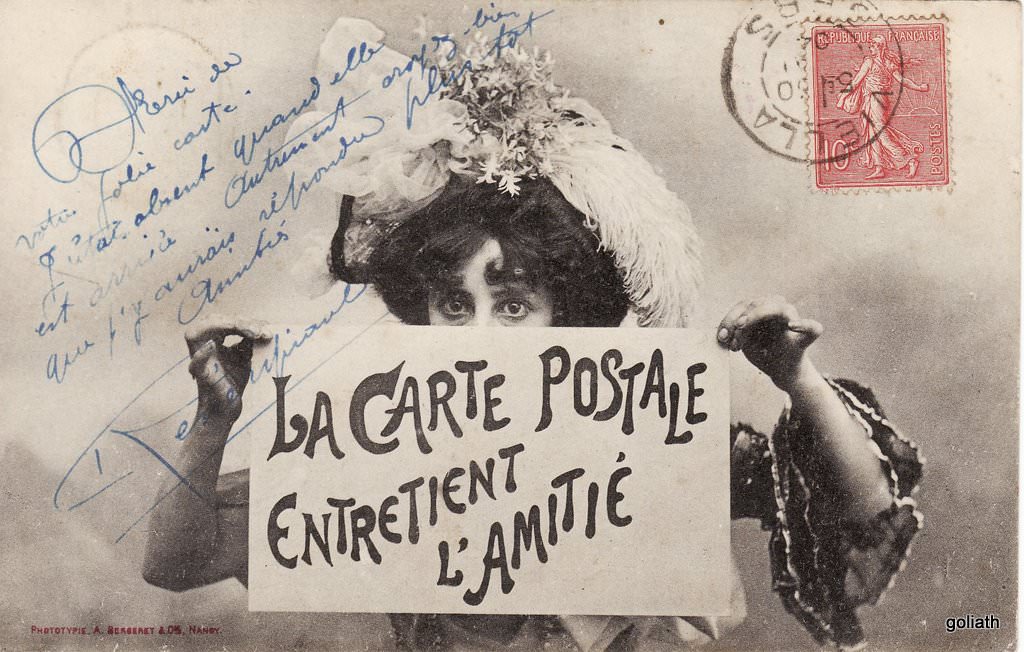 Merci de
votre jolie carte.
J'étais absent quand elle
est arrivée autrement croyez bien
que j'y aurais répondu plus tôt
Amitiés
LA CARTE POSTALE
ENTRETIENT
L'AMITIÉ
RÉPUBLIQUE FRANÇAISE
10 POSTES
PHOTOTYPIE, A. BERGERET & Cie, NANCY.
goliath